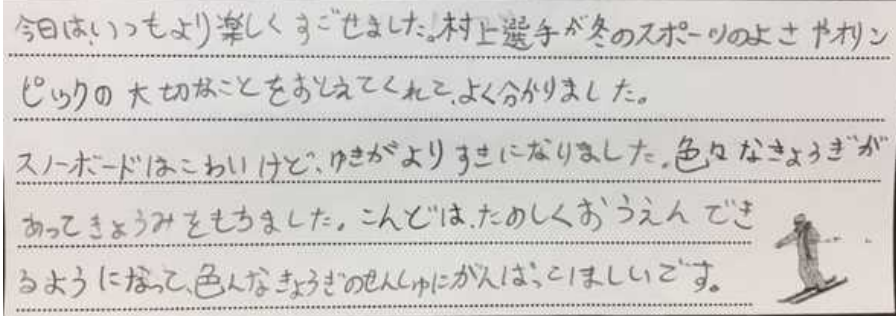 今日は、いつもより楽しくすごせました。村上選手が冬のスポーツのよさやオリン
ピックの大切なことをおしえてくれて、よく分かりました。
スノーボードはこわいけど、ゆきがよりすきになりました。色々なきょうぎが
あってきょうみをもちました。こんどは、たのしくおうえんでき
るようになって、色んなきょうぎのせんしゅにがんばってほしいです。